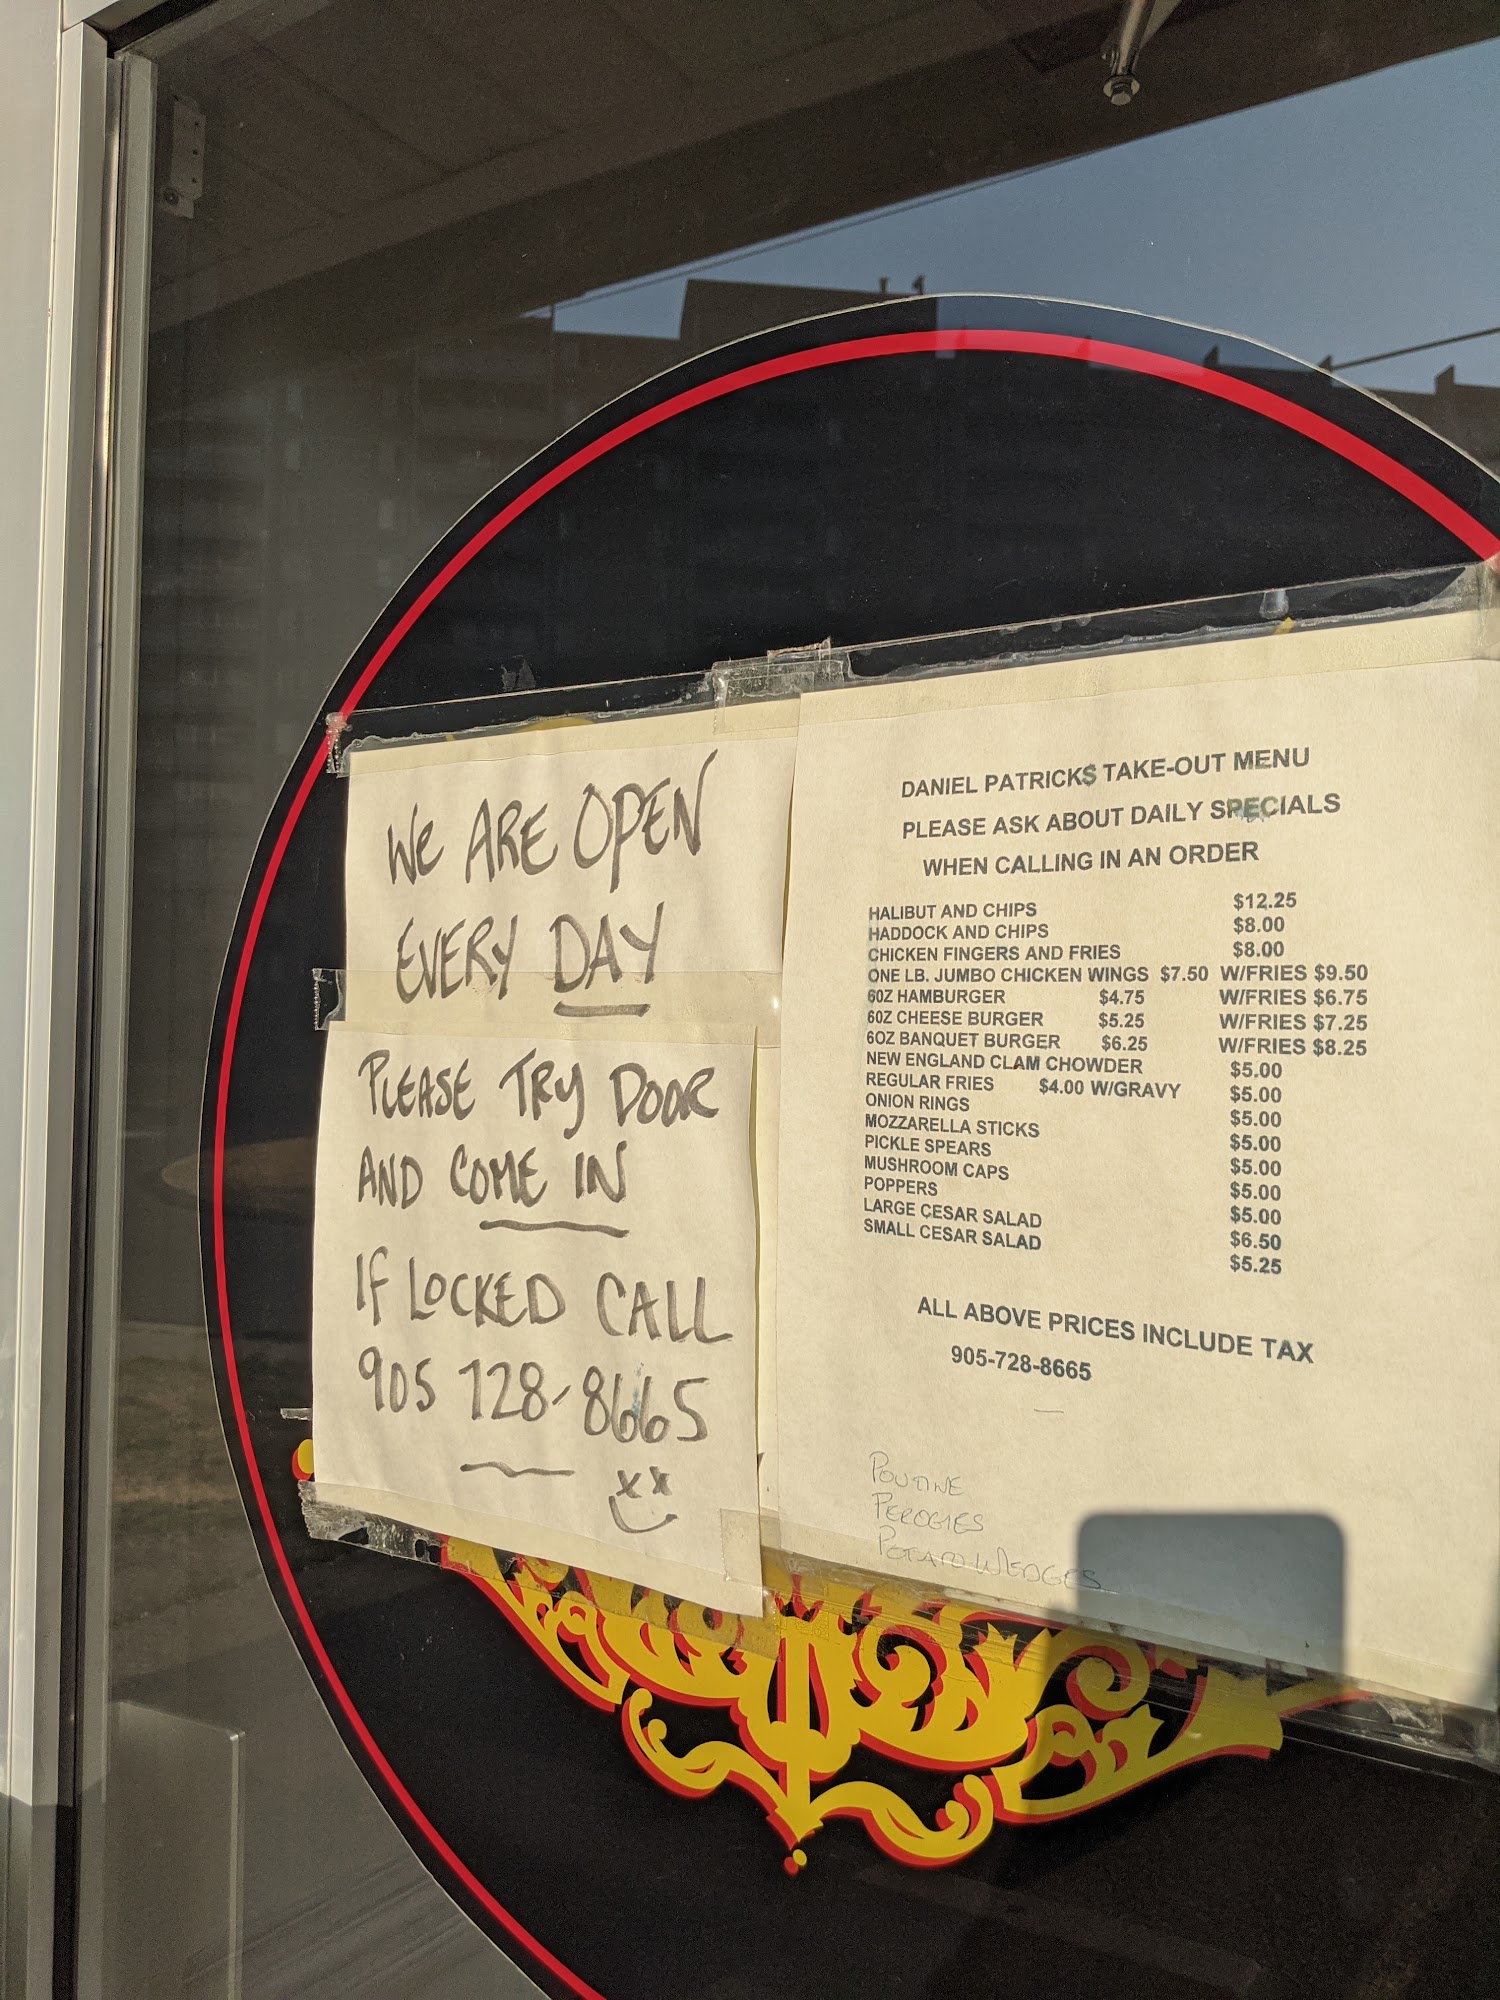 WE ARE OPEN
EVERY DAY
PLEASE TRY DOOR
AND COME IN
IF LOCKED CALL
905 728-8665
DANIEL PATRICKS TAKE-OUT MENU
PLEASE ASK ABOUT DAILY SPECIALS
WHEN CALLING IN AN ORDER
HALIBUT AND CHIPS $12.25
HADDOCK AND CHIPS $8.00
CHICKEN FINGERS AND FRIES $8.00
ONE LB. JUMBO CHICKEN WINGS $7.50 W/FRIES $9.50
6OZ HAMBURGER $4.75 W/FRIES $6.75
6OZ CHEESE BURGER $5.25 W/FRIES $7.25
6OZ BANQUET BURGER $6.25 W/FRIES $8.25
NEW ENGLAND CLAM CHOWDER $5.00
REGULAR FRIES $4.00 W/GRAVY $5.00
ONION RINGS $5.00
MOZZARELLA STICKS $5.00
PICKLE SPEARS $5.00
MUSHROOM CAPS $5.00
POPPERS $5.00
LARGE CESAR SALAD $6.50
SMALL CESAR SALAD $5.25
ALL ABOVE PRICES INCLUDE TAX
905-728-8665
POUTINE
PEROGIES
POTATO WEDGES